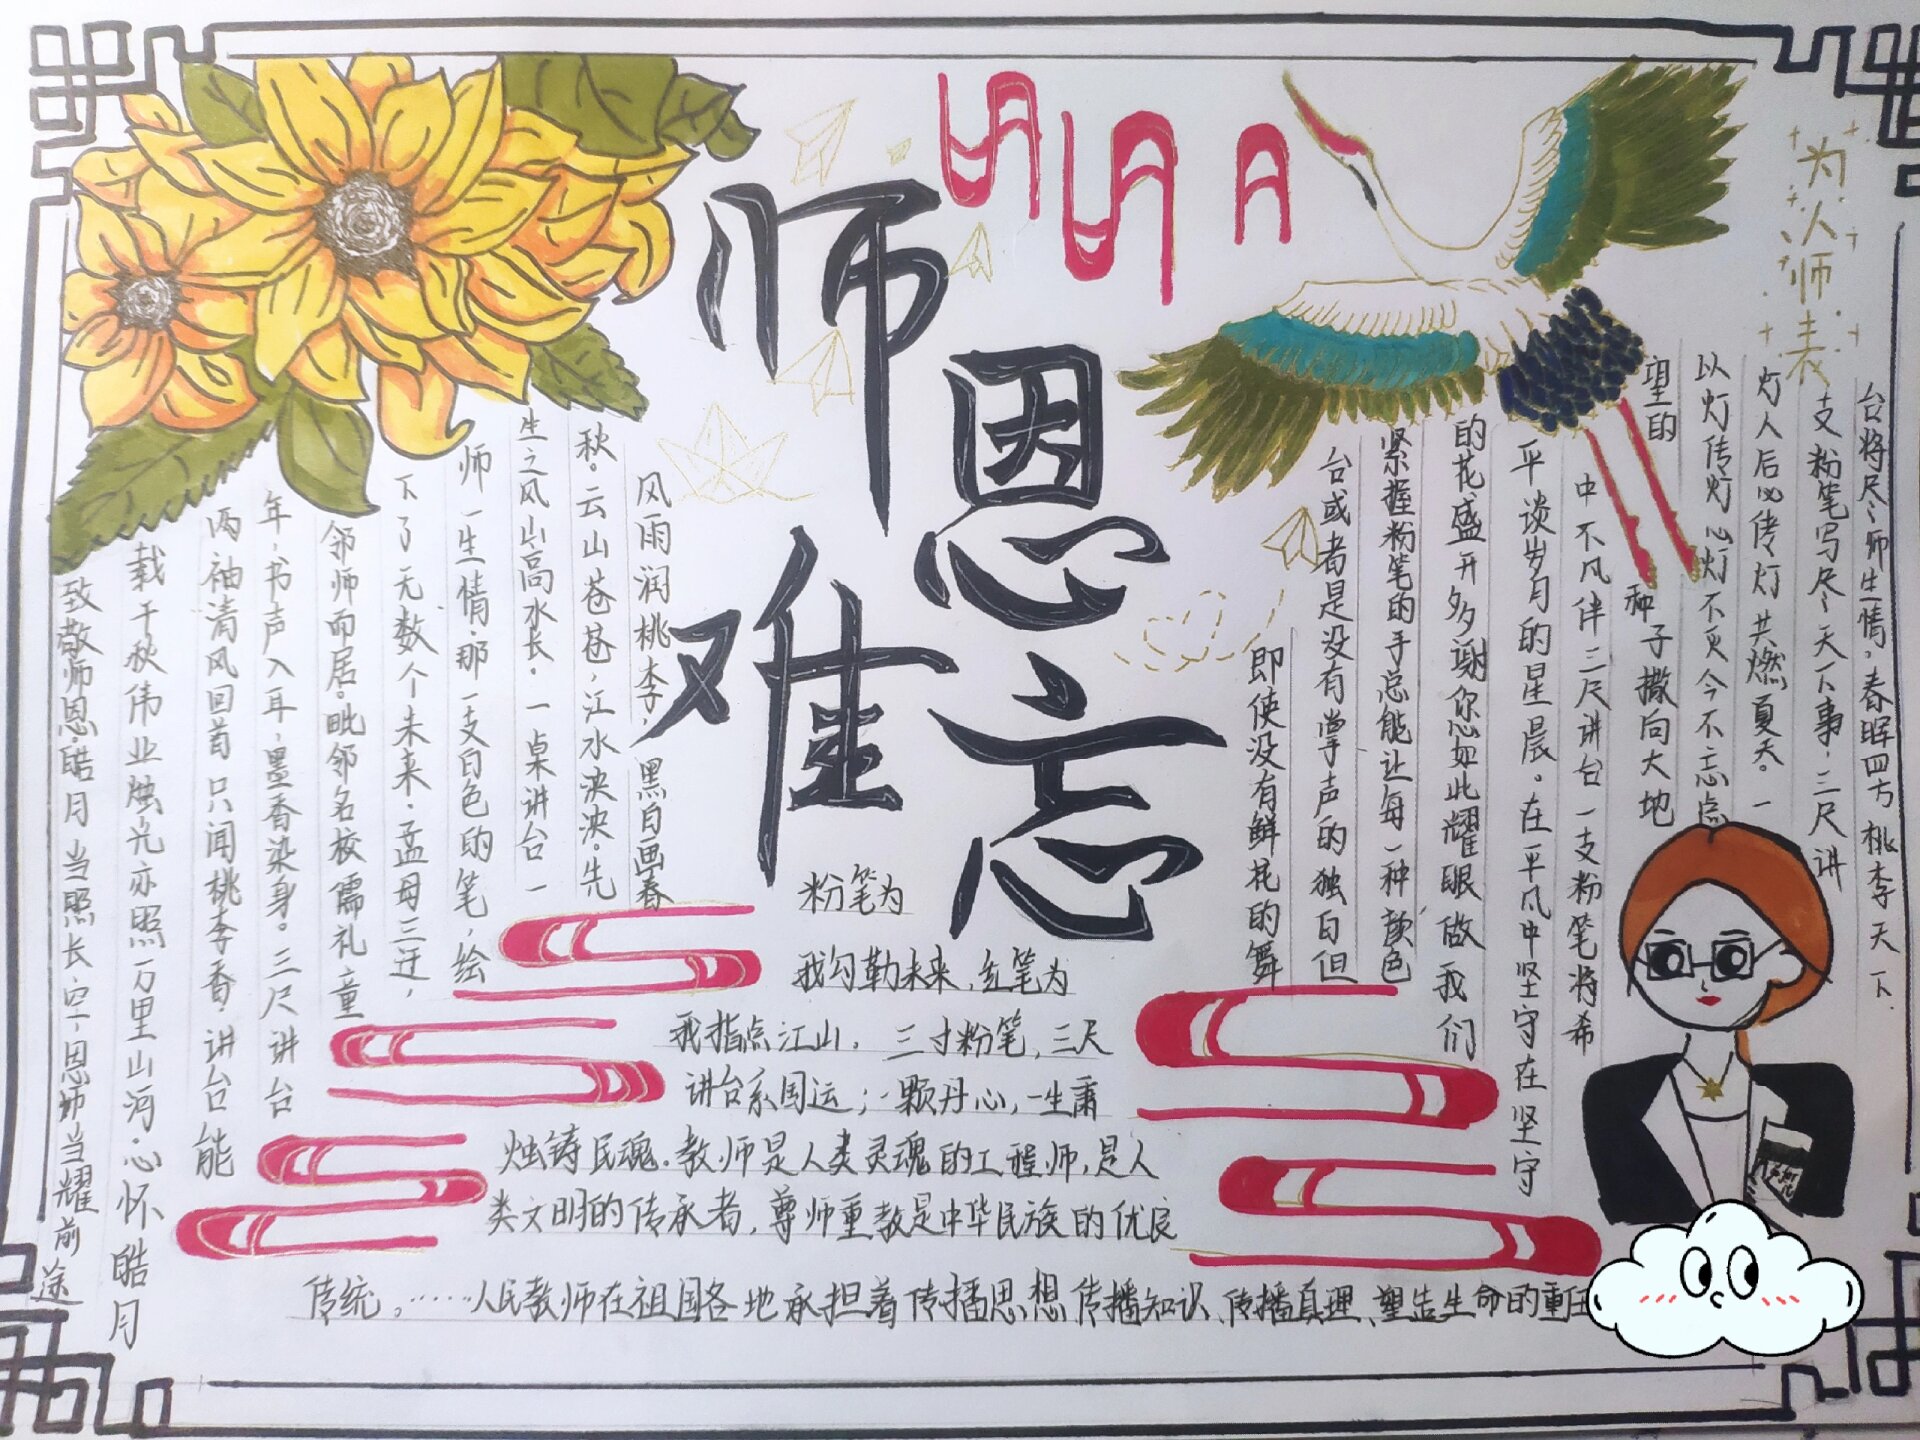 师恩难忘
为人师表
风雨润桃李，黑白画春
秋。云山苍苍，江水泱泱。先
生之风山高水长。一桌讲台一
师一生情，那一支白色的笔，绘
下了无数个未来。孟母三迁，
邻师而居。毗邻名校儒礼童
年，书声入耳，墨香染身。三尺讲台
两袖清风回首只闻桃李香，讲台能
载千秋伟业烛光亦照万里山河。心怀皓月
致敬师恩。皓月当照长空，恩师当耀前途
粉笔为
我勾勒未来，红笔为
我指点江山。三寸粉笔，三尺
讲台系国运；一颗丹心，一生秉
烛铸民魂。教师是人类灵魂的工程师，是人
类文明的传承者，尊师重教是中华民族的优良
传统。……人民教师在祖国各地承担着传播思想传播知识、传播真理、塑造生命的重
台将尽、师生情，春晖四方桃李天下.
支粉笔写尽、天下事，三尺讲
灯人后必传灯共燃夏天。一
以灯传灯心灯不灭今不忘点
望的种子撒向大地
中不凡伴三尺讲台一支粉笔将希
平淡岁月的星晨。在平凡中坚守在坚守
的花盛开多谢你您如此耀眼做我们
紧握粉笔的手总能让每一种颜色
台或者是没有掌声的独白但
即使没有鲜花的舞